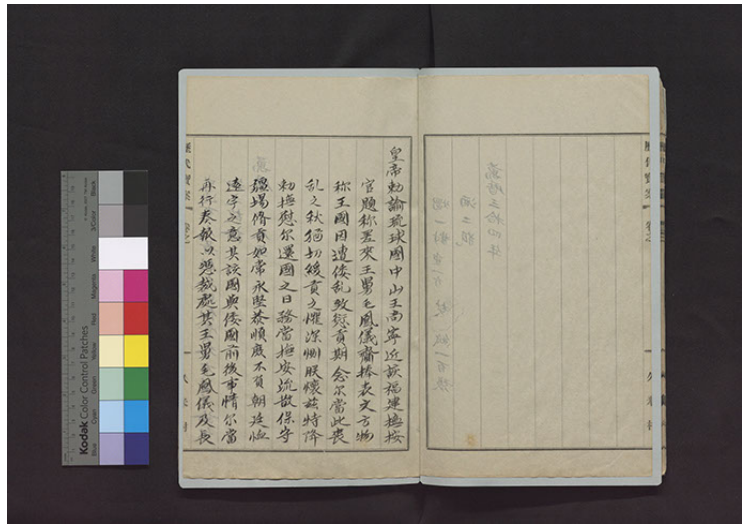 皇帝勅諭琉球國中山王尚寧近該福建撫按
官題稱差來王舅毛鳳儀齎捧表文方物
稱王國因遭倭亂致愆貢期念尔當此喪
亂之秋猶切緩貢之懼深惻朕懷茲特降
勅撫慰尔還國之日務當撫安流散保守
疆場脩貢如常永堅恭順庶不負朝廷恤
遠字之意其該國與倭國前後事情尔當
再行奏報以憑裁處其王舅毛鳳儀及長
Kodak Color Control Patches
Blue Cyan Green Yellow Red Magenta White 3/Color Black